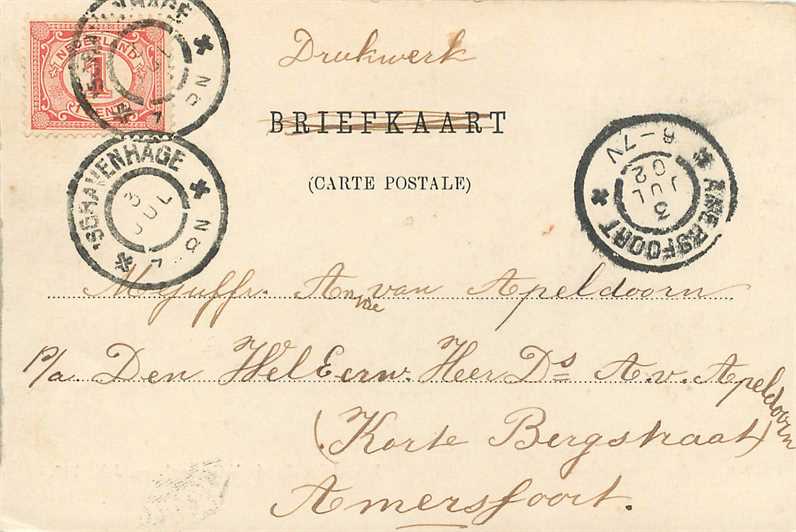 Drukwerk
NEDERLAND
1
CENT
BRIEFKAART
(CARTE POSTALE)
'SGRAVENHAGE
3 JUL
AMERSFOORT
3 JUL 02
6-7N
Mejuffr. Annie van Apeldoorn
p/a. Den WelEerw. Heer Ds A. v. Apeldoorn
(Korte Bergstraat)
Amersfoort.